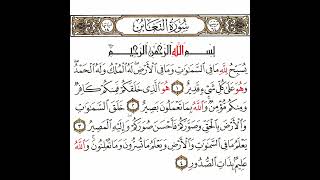 سُورَةُ التَّغَابُنِ
بِسْمِ اللَّهِ الرَّحْمَٰنِ الرَّحِيمِ
يُسَبِّحُ لِلَّهِ مَا فِي السَّمَاوَاتِ وَمَا فِي الْأَرْضِ لَهُ الْمُلْكُ وَلَهُ الْحَمْدُ
وَهُوَ عَلَىٰ كُلِّ شَيْءٍ قَدِيرٌ ١ هُوَ الَّذِي خَلَقَكُمْ فَمِنكُمْ كَافِرٌ
وَمِنكُم مُّؤْمِنٌ وَاللَّهُ بِمَا تَعْمَلُونَ بَصِيرٌ ٢ خَلَقَ السَّمَاوَاتِ
وَالْأَرْضَ بِالْحَقِّ وَصَوَّرَكُمْ فَأَحْسَنَ صُوَرَكُمْ وَإِلَيْهِ الْمَصِيرُ ٣
يَعْلَمُ مَا فِي السَّمَاوَاتِ وَالْأَرْضِ وَيَعْلَمُ مَا تُسِرُّونَ وَمَا تُعْلِنُونَ وَاللَّهُ
عَلِيمٌ بِذَاتِ الصُّدُورِ ٤